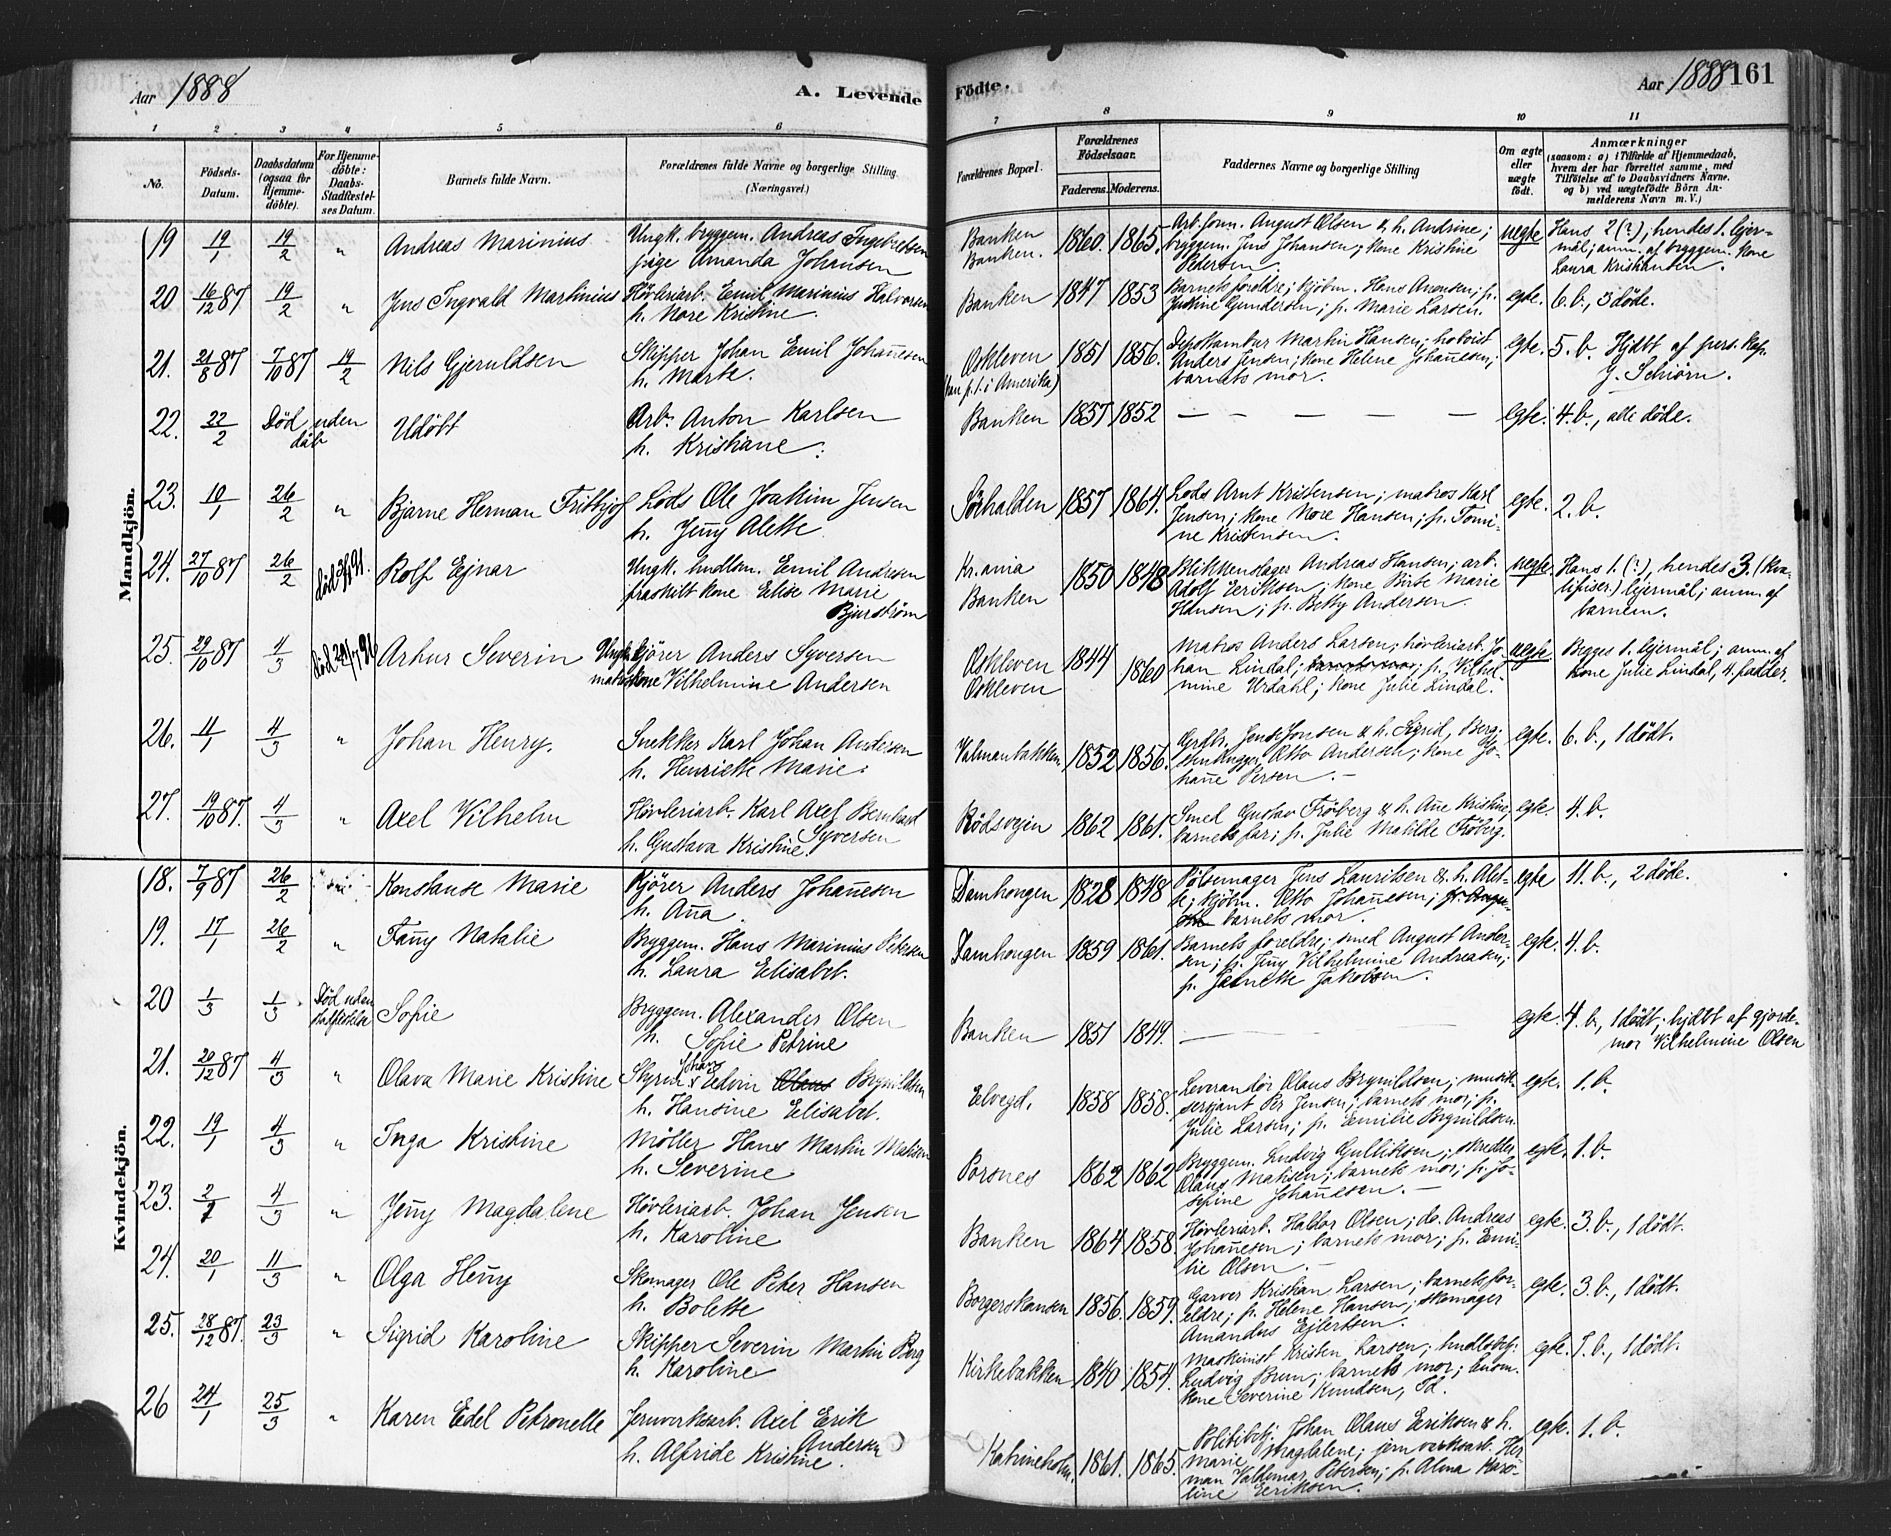 Aar 1888
A. Levende
Fødte.
Aar 1888
161
1 2 3 4 5 6 7 8 9 10 11
No.
Fødsels-
Datum.
Daabsdatum
(ogsaa for
Hjemme-
døbte).
For Hjemme-
døbte:
Daabs-
Stadfæstel-
ses Datum.
Barnets fulde Navn.
Forældrenes fulde Navne og borgerlige Stilling
(Næringsvei.)
Forældrenes Bopæl.
Forældrenes
Fødselsaar.
Faderens. Moderens.
Faddernes Navne og borgerlige Stilling
Om ægte
eller
uægte
født.
Anmærkninger
(saasom: a) i Tilfælde af Hjemmedaab,
hvem der har forrettet samme, med
Tilføielse af to Daabsvidners Navne.
og b) ved uægtefødte Børn An-
melderens Navn m. V.)
Mandkjøn.
19 19/1 19/2 " Andreas Marinius
Ungk. bryggem. Andreas Ingebretsen
pige Amanda Johansen
Banken
Banken.
1860. 1865.
Arb.form. August Olsen & h. Andrine;
bryggem. Jens Johansen; kone Kristine
Pedersen
uegte
Hans 2 (?); hendes 1. lejer-
mål; anm. af bryggem. kone
Laura Kristiansen.
20 16/12 87 19/2 " Jens Ingvald Martinius
Høvleriarb. Emil Marinius Halvorsen
h. Nore Kristine.
Banken 1847 1853
Barnets foreldre; kjøbm. Hans Anonsen; p.
Justine Gundersen; p. Marie Larsen.
egte. 6. b., 3 døde.
21. 21/8 87 7/10 87 19/2 Nils Gjeruldsen
Skipper Johan Emil Johañesen
h. Marte.
Oskleven
(han p. t. i Amerika)
1851 1856.
Depotkambur Martin Hansen; hoboist
Anders Jensen; kone Helene Johañesen;
barnets mor.
egte. 5. b. Hjdbt af pers. kap.
J. Schiørn.
22. 22/2 Død uden
dåb
Udøbt
Arb. Anton Karlsen
h. Kristiane.
Banken 1857 1852 — — — — —
egte. 4. b., alle døde.
23. 10/1 26/2 " Bjarne Herman Fritbjof
Lods Ole Joakim Jensen
h. Jeñy Alette
Sørhalden 1857 1864.
Lods Arnt Kristensen; matros Karl
Jensen; kone Nore Hansen; p. Tomi-
ne Kristensen.
egte. 2. b.
24. 27/10 87 26/2 Rolf Ejnar
Ungk. hndlsm. Emil Andresen
fraskilt kone Elise Marie
Bjurstrøm
Kr.ania
Banken
1850 1848
Blikkenslager Andreas Hansen; arb.
Adolf Eeriksen; kone Birte Marie
Hansen; p. Betty Andersen.
uegte. Hans 1. (?), hendes 3. (kva-
lifiser.) lejermål; anm. af
barnem.
25. 29/10 87 4/3 Arthur Severin
Ungk. kjører Anders Syversen
matroskone Vilhelmine Andersen
Oskleven
Oskleven
1844 1860
Matros Anders Larsen; høvleriarb. Jo-
han Lindal; barnets mor; p. Vilhel-
mine Urdahl; kone Julie Lindal.
uegte Begges 1. lejermål; anm. af
kone Julie Lindal, 4. fadder.
26. 11/1 4/3 " Johan Henry.
Snekker Karl Johan Andersen
h. Henriette Marie.
Valmanbakken 1852 1856.
Grdb. Jens Jonsen & h. Sigrid, Berg;
stenhugger Otto Andersen; kone Jo-
hañe Persen.—
egte. 6. b., 1 dødt.
27. 19/10 87. 4/3 " Axel Vilhelm
Høvleriarb. Karl Axel Bernhard
Syversen
h. Gustava Kristine.
Rødsvejen 1862 1861.
Smed Gustav Frøberg & h. Ane Kristine;
barnets far; p. Julie Matilde Frøberg.
egte. 4. b.
Kvindekjøn.
18. 7/9 87 26/2 Konstanse Marie
Kjører Anders Johañesen
h. Aña.
Damhougen 1828 1848
Pølsemager Jens Lauritsen & h. Alet-
te; kjøbm. Otto Johañesen;
barnets mor.
egte 11. b., 2 døde.
19. 17/1 26/2 " Fañy Natalie
Bryggem. Hans Marinius Petersen
h. Laura Elisabet.
Damhougen 1859 1861.
Barnets foreldre; smed August Ander-
sen; p. Jeñy Vilhelmine Andreasen;
p. Janette Jakobsen.
egte. 4. b.
20 1/3 1/3. Død uden
stadfestelse
Sofie
Bryggem. Alexander Olsen
h. Sofie Petrine
Banken 1851 1849.
egte. 4. b., 1 dødt; hjdbt af gjorde-
mor Vilhelmine Olsen
21. 20/12 87 4/3 " Olava Marie Kristine
Styrm. Johan Edvin Olaus Brynildsen
h. Hansine Elisabet.
Elvegd. 1858 1858.
Leverandør Olaus Brynildsen; musik-
serjant Per Jensen; barnets mor; p.
Julie Larsen; p. Emilie Brynildsen.
egte. 1. b.
22. 19/1 4/3 " Inga Kristine
Møller Hans Martin Matisen
h. Severine
Porsnes 1862 1862
Bryggem. Ludvig Gulliksen; skredder
Olaus Matisen; barnets mor; p. Jo-
sefine Johañesen.—
egte. 1. b.
23. 2/1 4/3 " Jeñy Magdalene
Høvleriarb. Johan Jensen
h. Karoline
Banken 1864 1858.
Høvleriarb. Haldor Olsen; do. Andreas
Johañesen; barnets mor; p. Emi-
lie Olsen.—
egte. 3. b., 1 dødt.
24. 20/1 11/3 " Olga Heñy
Skomager Ole Peter Hansen
h. Bolette
Borgerskansen 1856. 1859.
Garver Kristian Larsen; barnets for-
eldre; p. Helene Hansen; skomager
Amandus Ejlertsen.
egte. 3. b., 1 dødt.
25. 28/12 87. 23/3 " Sigrid Karoline
Skipper Severin Martin Berg
h. Karoline
Kirkebakken 1840 1854.
Maskinist Kristen Larsen;
Ludvig Brun; barnets mor;
kone Severine Knudsen, Td.
egte. 7. b., 1 dødt.
26 24/1 25/3 " Karen Edel Petronelle
Jernverksarb. Axel Erik
Andersen
h. Alfride Kristine.
Katrineholm. 1861. 1865.
Politibetj. Johan Olaus Eeriksen & h.
Marie Magdalene; jernverksarb. Her-
man Valdemar Petersen; p. Alma Karo-
line Eeriksen.
egte. 1. b.